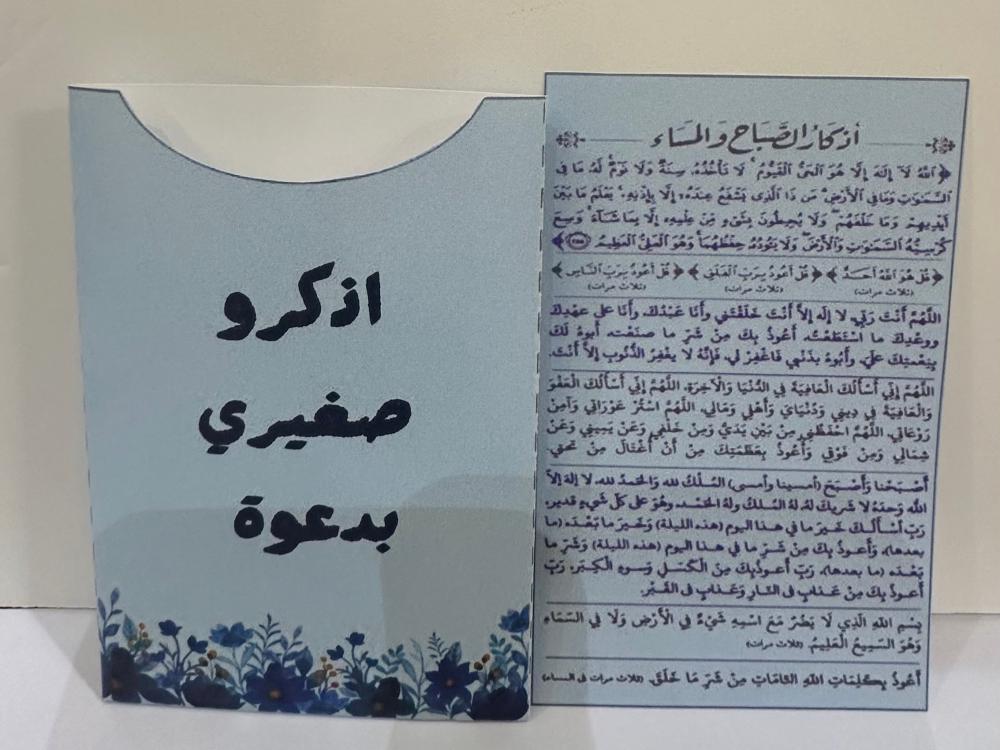 اذكرو
صغيري
بدعوة
أذكار الصَّبَاح وَالمَسَاء
﴿ٱللَّهُ لَآ إِلَٰهَ إِلَّا هُوَ ٱلْحَىُّ ٱلْقَيُّومُ ۚ لَا تَأْخُذُهُۥ سِنَةٌ وَلَا نَوْمٌ ۚ لَّهُۥ مَا فِى
ٱلسَّمَٰوَٰتِ وَمَا فِى ٱلْأَرْضِ ۗ مَن ذَا ٱلَّذِى يَشْفَعُ عِندَهُۥٓ إِلَّا بِإِذْنِهِۦ ۚ يَعْلَمُ مَا بَيْنَ
أَيْدِيهِمْ وَمَا خَلْفَهُمْ ۖ وَلَا يُحِيطُونَ بِشَىْءٍ مِّنْ عِلْمِهِۦٓ إِلَّا بِمَا شَآءَ ۚ وَسِعَ
كُرْسِيُّهُ ٱلسَّمَٰوَٰتِ وَٱلْأَرْضَ ۖ وَلَا يَـُٔودُهُۥ حِفْظُهُمَا ۚ وَهُوَ ٱلْعَلِىُّ ٱلْعَظِيمُ ٢٥٥﴾
﴿قُلْ هُوَ ٱللَّهُ أَحَدٌ﴾ ﴿قُلْ أَعُوذُ بِرَبِّ ٱلْفَلَقِ﴾ ﴿قُلْ أَعُوذُ بِرَبِّ ٱلنَّاسِ﴾
(ثلاث مرات) (ثلاث مرات) (ثلاث مرات)
اللَّهُمَّ أَنْتَ رَبِّي، لا إِلَه إِلاَّ أَنْتَ خَلَقْتَنِي وأَنَا عَبْدُكَ، وأَنَا على عهْدِكَ
ووعْدِكَ ما اسْتَطَعْتُ، أَعُوذُ بِكَ مِنْ شَرِّ ما صنَعْتُ، أَبوءُ لَكَ
بِنِعْمتِكَ علَيَّ، وأَبُوءُ بذَنْبي فَاغْفِرْ لي، فَإِنَّهُ لا يغْفِرُ الذُّنُوبَ إِلاَّ أَنْتَ.
اللَّهُمَّ إِنِّي أَسْأَلُكَ الْعَافِيَةَ فِي الدُّنْيَا وَالْآخِرَةِ، اللَّهُمَّ إِنِّي أَسْأَلُكَ الْعَفْوَ
وَالْعَافِيَةَ فِي دِينِي وَدُنْيَايَ وَأَهْلِي وَمَالِي، اللَّهُمَّ اسْتُرْ عَوْرَاتِي وَآمِنْ
رَوْعَاتِي، اللَّهُمَّ احْفَظْنِي مِنْ بَيْنِ يَدَيَّ وَمِنْ خَلْفِي وَعَنْ يَمِينِي وَعَنْ
شِمَالِي وَمِنْ فَوْقِي وَأَعُوذُ بِعَظَمَتِكَ مِنْ أَنْ أُغْتَالَ مِنْ تحتي.
أَصْبَحْنا وَأَصْبَحَ (أمسينا وأمسى) المُلْكُ لله وَالحَمدُ لله، لا إلهَ إلاّ
اللّه وَحدَهُ لا شَريكَ لهُ، لهُ المُلكُ ولهُ الحَمْد، وهُوَ على كلّ شَيءٍ قدير،
رَبِّ أسْأَلُكَ خَيرَ ما في هذا اليوم (هذه الليلة) وَخَيرَ ما بَعْدَه (ما
بعدها)، وَأَعوذُ بِكَ مِنْ شَرِّ ما في هذا اليوم (هذه الليلة) وَشَرِّ ما
بَعْدَه (ما بعدها)، رَبِّ أَعوذُ بِكَ مِنَ الْكَسَلِ وَسوءِ الْكِبَرِ، رَبِّ
أَعوذُ بِكَ مِنْ عَذابٍ في النّارِ وَعَذابٍ في القَبْرِ.
بِسْمِ اللهِ الَّذِي لَا يَضُرُّ مَعَ اسْمِهِ شَيْءٌ فِي الْأَرْضِ وَلَا فِي السَّمَاءِ
وَهُوَ السَّمِيعُ الْعَلِيمُ. (ثلاث مرات)
أَعُوذُ بِكَلِمَاتِ اللهِ التَّامَّاتِ مِنْ شَرِّ مَا خَلَقَ. (ثلاث مرات في المساء)